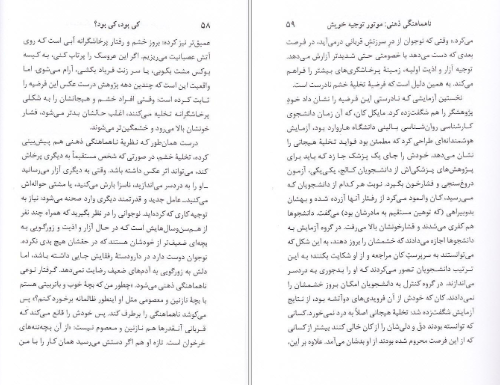 ۵۸ کی بود، کی بود؟
عمیق‌تر نیز کرده: بروز خشم و رفتار پرخاشگرانه آبی است که روی
آتش عصبانیت می‌ریزیم. اگر این عروسک را پرتاب کنی، به کیسه
بوکس مشت بکوبی، یا سر زنت فریاد بکشی، آرام می‌شوی. اما
واقعیت این است که چندین دهه پژوهش درست عکس این فرضیه را
ثابت کرده است: وقتی افراد خشم و هیجانشان را به شکلی
پرخاشگرانه تخلیه می‌کنند، اغلب حالشان بدتر می‌شود، فشار
خونشان بالا می‌رود و خشمگین‌تر می‌شوند.
درست همان‌طور که نظریهٔ ناهماهنگی ذهنی هم پیش‌بینی
می‌کند، تخلیهٔ خشم، در صورتی که شخص مستقیماً به دیگری پرخاش
کند، می‌تواند اثر عکس داشته باشد. وقتی به دیگری آزار می‌رسانید
ـ او را به دردسر می‌اندازید، ناسزا بارش می‌کنید، یا مشتی حواله‌اش
می‌کنید ـ عامل جدید و قدرتمند دیگری وارد صحنه می‌شود: نیاز به
توجیه کاری که کرده‌اید. نوجوانی را در نظر بگیرید که همراه چند نفر
از هم‌سن‌وسال‌هایش است که در حال آزار و اذیت و زورگویی به
بچه‌ای ضعیف‌تر از خودشان هستند که در حقشان هیچ بدی نکرده.
نوجوان دوست دارد در دارودستهٔ رفقایش جایی داشته باشد، اما
دلش به زورگویی به آدم‌های ضعیف رضایت نمی‌دهد. گرفتار نوعی
ناهماهنگی ذهنی می‌شود: «چطور من که بچهٔ خوب و باتربیتی هستم
با بچهٔ نازنین و معصومی مثل او این‌طور ظالمانه برخورد کنم؟» پس
می‌کوشد ناهماهنگی را برطرف کند، پس خودش را قانع می‌کند که
قربانی آنقدرها هم نازنین و معصوم نیست: «از آن بچه‌ننه‌های
خرخوان است. تازه او هم اگر دستش می‌رسید همان کار را با من
ناهماهنگی ذهنی: موتور توجیه خویش ۵۹
می‌کرد.» وقتی که نوجوان از در سرزنش قربانی درمی‌آید، در فرصت
بعدی که دست می‌دهد با خصومتی حتی شدیدتر آزارش می‌دهد.
توجیه آزار و اذیت اولیه، زمینهٔ پرخاشگری‌های بیشتر را فراهم
می‌کند. به همین دلیل است که فرضیهٔ تخلیهٔ خشم نادرست است.
نخستین آزمایشی که نادرستی این فرضیه را نشان داد خودِ
پژوهشگر را هم شگفت‌زده کرد. مایکل کان، که آن زمان دانشجوی
کارشناسی روان‌شناسی بالینی دانشگاه هاروارد بود، آزمایش
هوشمندانه‌ای طراحی کرد که مطمئن بود فواید تخلیهٔ هیجانی را
نشان می‌دهد. خودش را جای یک پزشک جا زد که باید برای
پژوهش‌های پزشکی‌اش از دانشجویان کالج، یکی‌یکی، آزمون
دروغ‌سنجی و فشارخون بگیرد. نوبت هر کدام از دانشجویان که
می‌رسید، کان وانمود می‌کرد از رفتار آنها آزرده شده و بهشان
بدوبیراهی (که توهین مستقیم به مادرشان بود) می‌گفت. دانشجوها
هم کفری می‌شدند و فشارخونشان بالا می‌رفت. در گروه آزمایش به
دانشجوها اجازه می‌دادند که خشمشان را بروز دهند، به این شکل که
می‌توانستند به سرپرست کان مراجعه و از او شکایت بکنند؛ به این
ترتیب دانشجویان تصور می‌کردند که او را بدجوری به دردسر
می‌اندازند. در گروه کنترل به دانشجویان امکان بروز خشمشان را
نمی‌دادند. کان که خودش از آن فرویدی‌های دوآتشه بود، از نتایج
آزمایش شگفت‌زده شد: تخلیهٔ هیجانی اصلاً به درد نمی‌خورد. کسانی
که توانسته بودند دق و دلی‌شان را از کان خالی کنند بیشتر از کسانی
که از این فرصت محروم شده بودند از او بدشان می‌آمد. علاوه بر این،